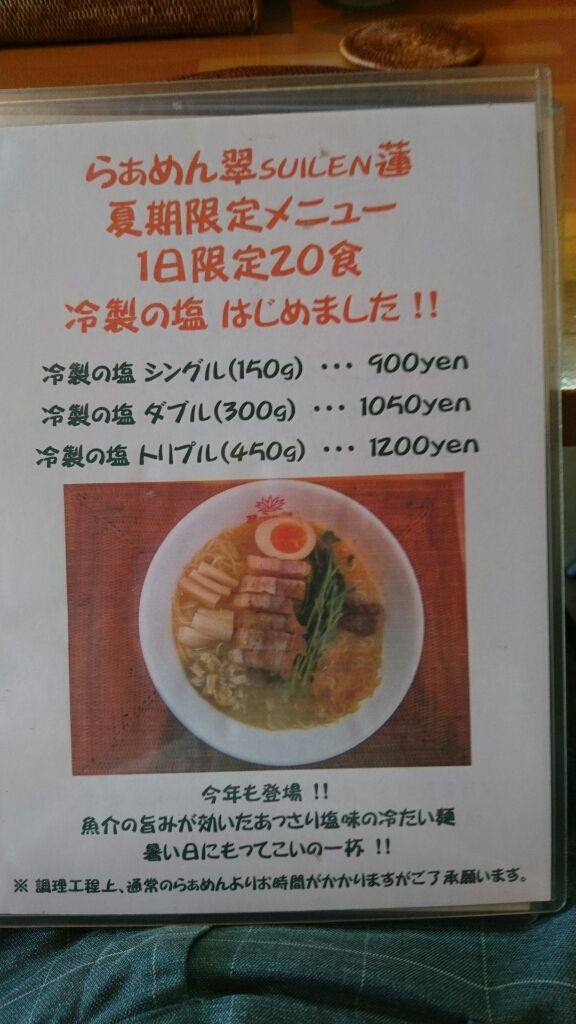 らぁめん翠SUILEN蓮
夏期限定メニュー
1日限定20食
冷製の塩 はじめました!!
冷製の塩 シングル(150g) ・・・ 900yen
冷製の塩 ダブル(300g) ・・・ 1050yen
冷製の塩 トリプル(450g) ・・・ 1200yen
今年も登場!!
魚介の旨みが効いたあっさり塩味の冷たい麺
暑い日にもってこいの一杯!!
※ 調理工程上、通常のらぁめんよりお時間がかかりますがご了承願います。